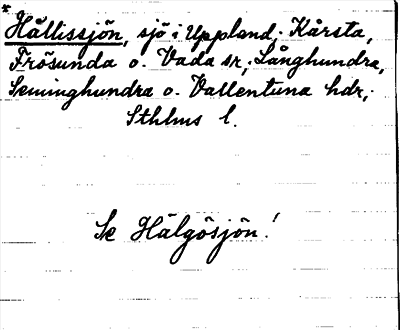 * Hållissjön, sjö i Uppland; Kårsta,
Frösunda o. Vada sr, Långhundra,
Seminghundra o. Vallentuna hdr,
Sthlms l.
Se Hälgösjön!